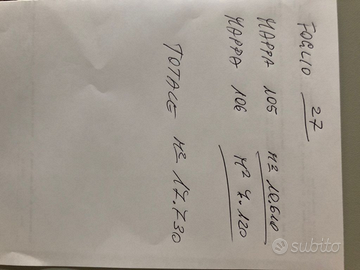 FOGLIO 27
MAPPA 105 M² 10.610
MAPPA 106 M² 7.120
TOTALE M² 17.730
subito